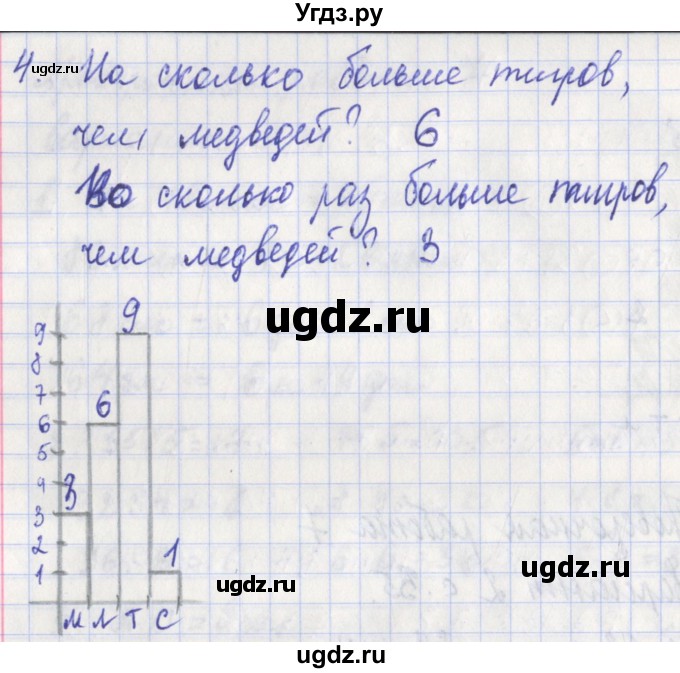 Угдз.ру
4. На сколько больше тигров,
ugdz.ru
ugdz.ru
чем медведей? 6
Во сколько раз больше тигров,
чем медведей? 3
ugdz.ru
9
9
8
7
6
6
5
4
3
3
2
1
1
ugdz.ru
м л т с
ugdz.ru